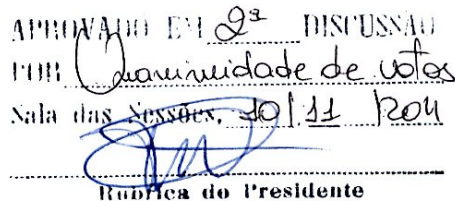 APROVADO EM 2ª DISCUSSÃO
POR Unanimidade de votos
Sala das Sessões, 10/11/2011
Rubrica do Presidente